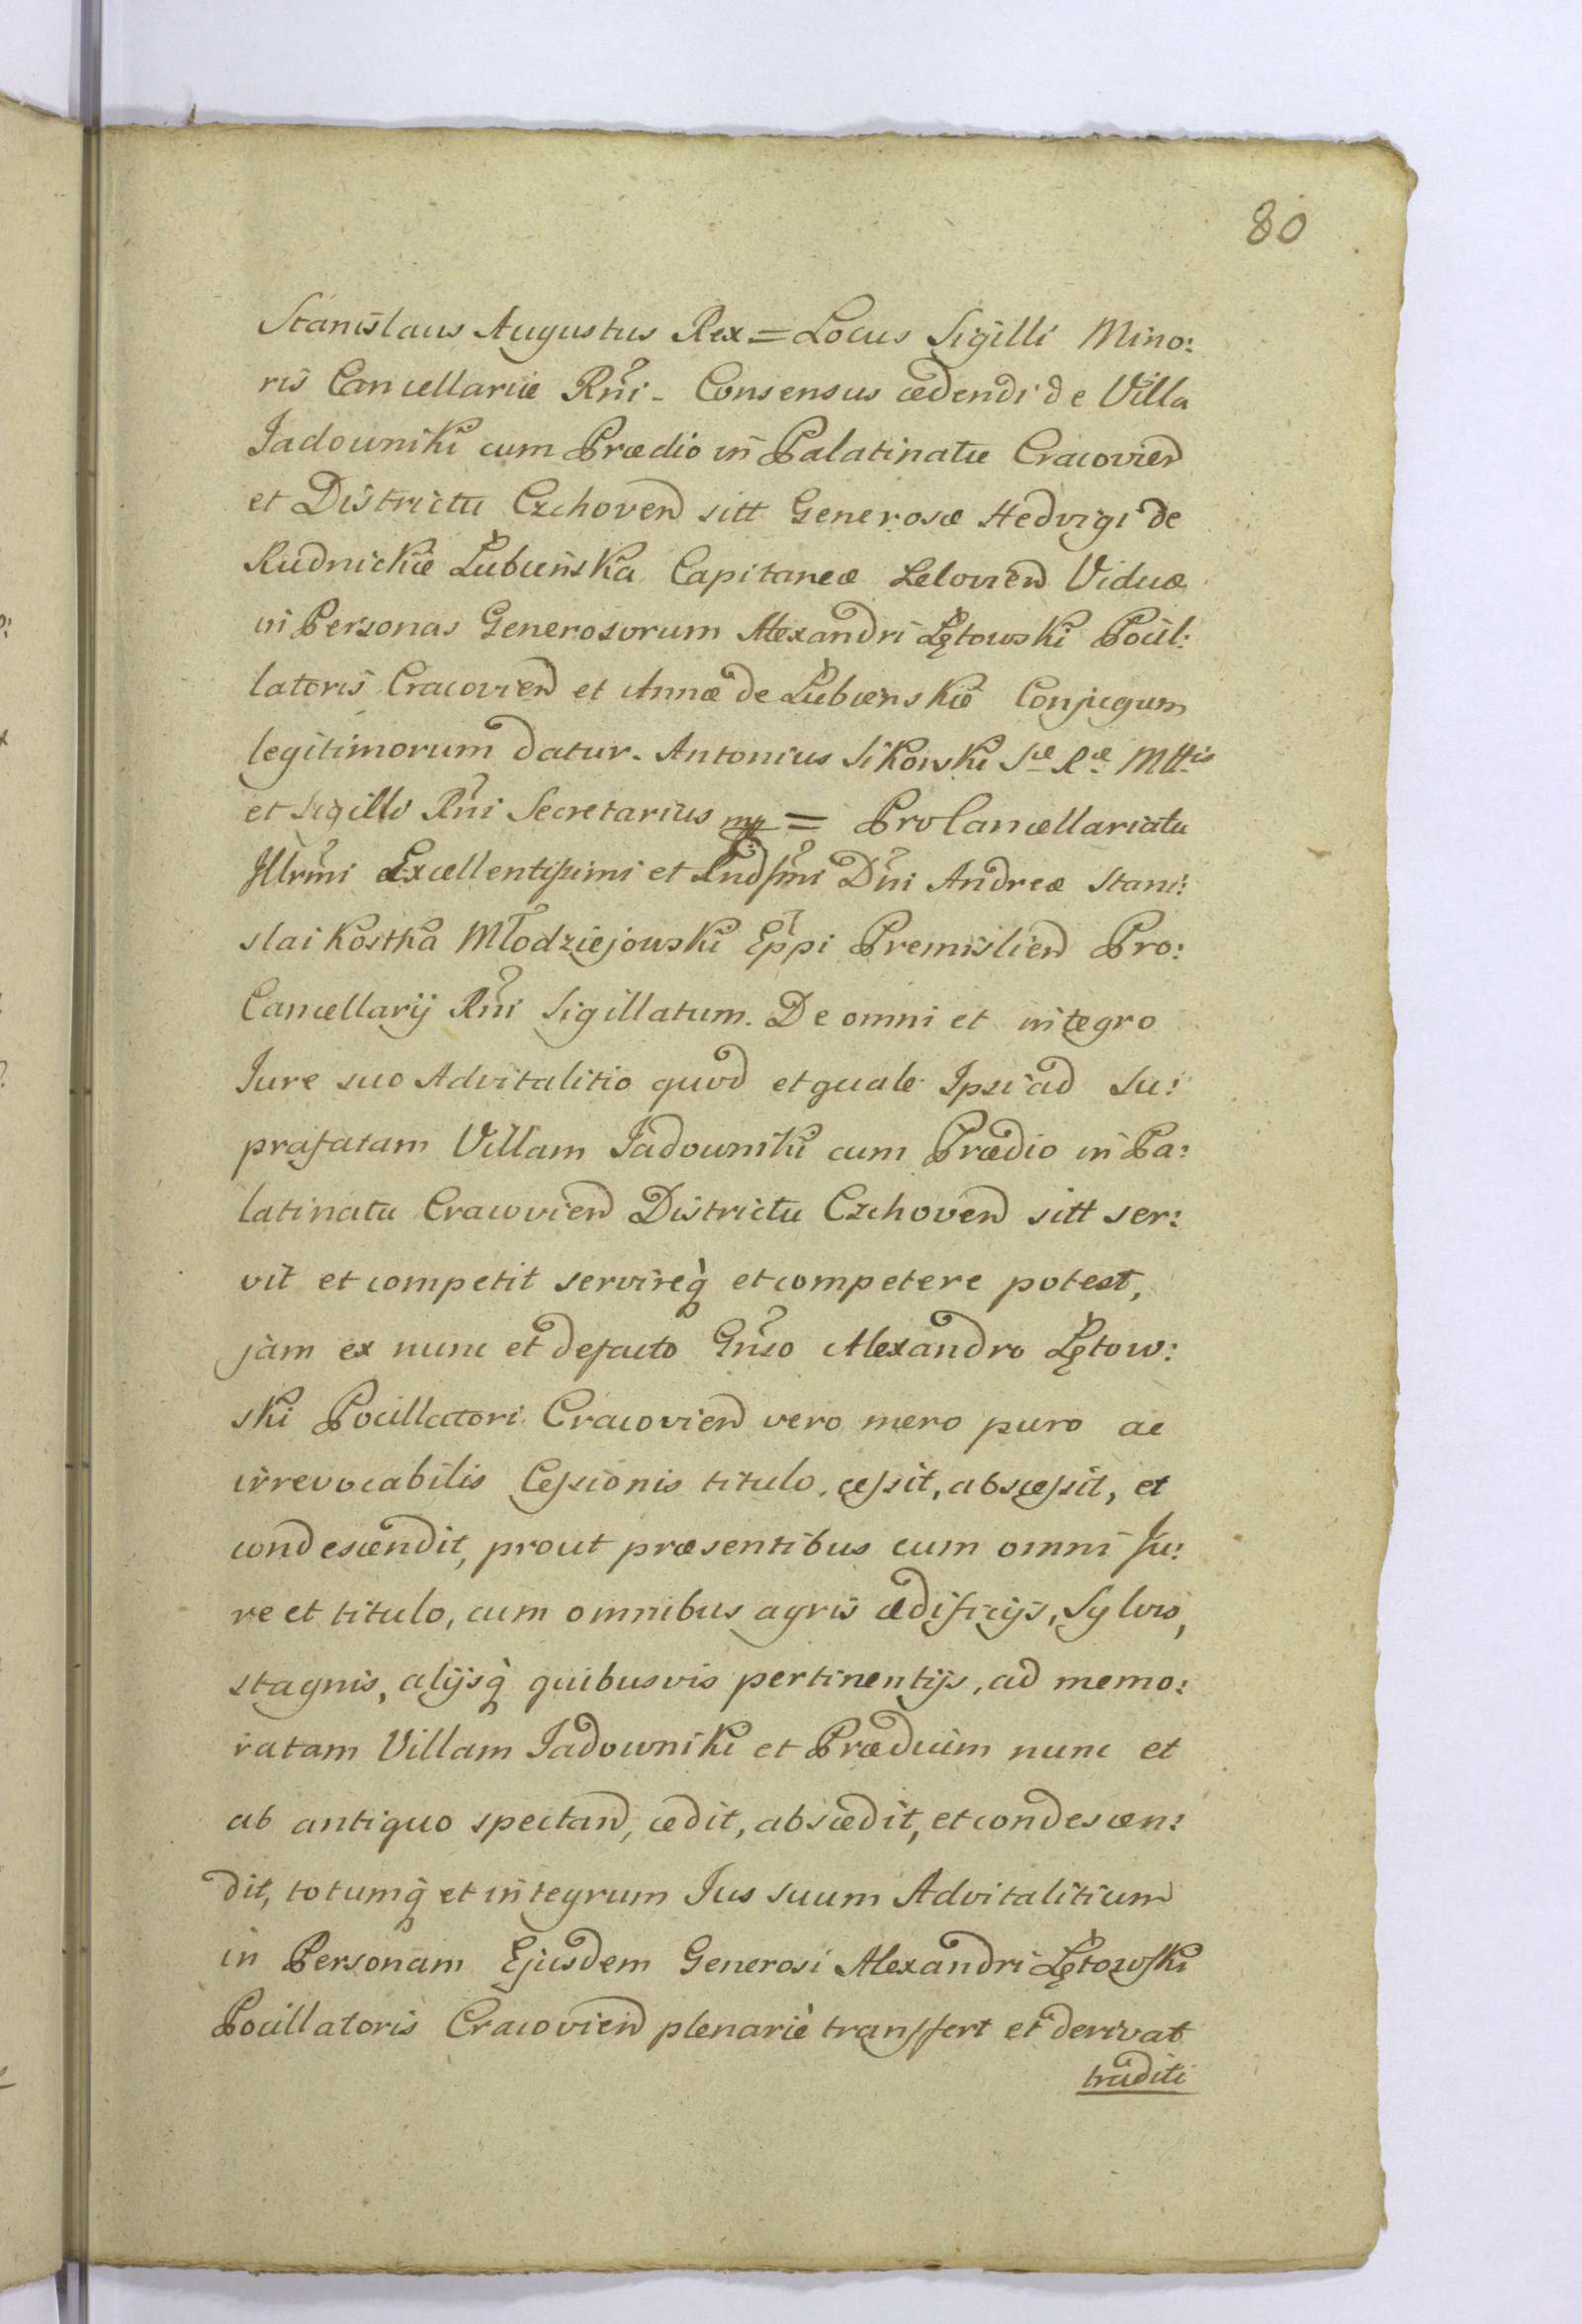 80
Stanislaus Augustus Rex = Locus Sigilli Mino:
ris Cancellariæ Rñi - Consensus cedendi de Villa
Jadowniki cum Prædio in Palatinatu Cracovien
et Districtu Czchoven sitt Generosæ Hedvigi de
Rudnickie Łubieńska Capitaneæ Lelovien Viduæ
in Personas Generosorum Alexandri Łętowski Pocil:
latoris Cracovien et Annæ de Łubienskie Conjugum
legitimorum datur. Antonius Sikorski Sæ Ræ Mttis
et Sigilli Rñi Secretarius mp = ProCancellariatu
Illrm̃i Excellentissimi et Rndssm̃i Dñi Andreæ Stani:
slai Kostka Młodziejowski Eppi Premislien Pro:
Cancellarij Rñi Sigillatum. De omni et integro
Jure suo Advitalitio quod et quale Ipsi ad Su:
prafatam Villam Jadowniki cum Prædio in Pa:
latinatu Cracovien Districtu Czchoven sitt ser:
vit et competit servireq̀ et competere potest,
jam ex nunc et defacto Gñso Alexandro Łętow:
ski Pocillatori Cracovien vero mero puro ac
irrevocabilis Cessionis titulo, cessit, abscessit, et
condescendit, prout præsentibus cum omni Ju:
re et titulo, cum omnibus agris ædificijs, Sylvis,
stagnis, alijsq̀ quibusvis pertinentijs, ad memo:
ratam Villam Jadowniki et Prædium nunc et
ab antiquo spectan, cedit, abscedit, et condescen:
dit, totumq̀ et integrum Jus suum Advitalitium
in Personam Ejusdem Generosi Alexandri Łętowski
Pocillatoris Cracovien plenariè transfert et derivat
traditi